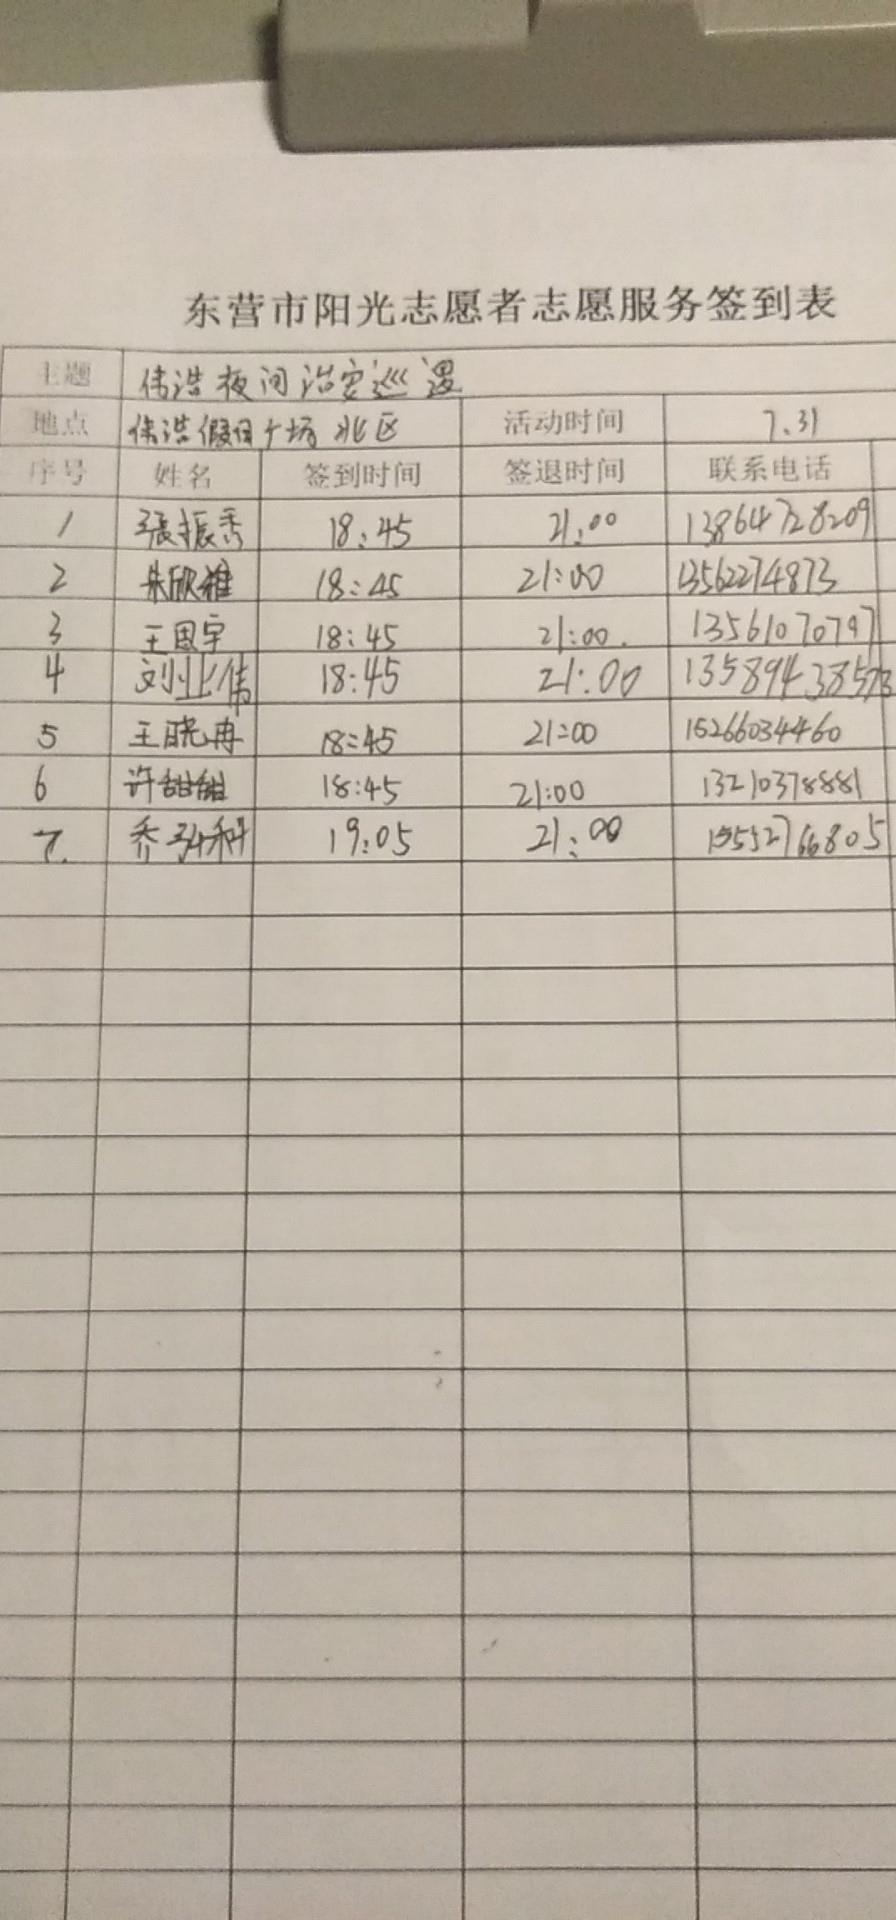 东营市阳光志愿者志愿服务签到表
主题 伟浩夜间治安巡逻
地点 伟浩假日广场北区 活动时间 7.31
序号 姓名 签到时间 签退时间 联系电话
1 张振秀 18:45 21:00 13864728209
2 朱欣雅 18:45 21:00 13562274873
3 王国宇 18:45 21:00 13561070797
4 刘业伟 18:45 21:00 13589438573
5 王晓冉 18:45 21:00 15266034460
6 许甜甜 18:45 21:00 13210378881
7. 乔 19:05 21:00 15552766805